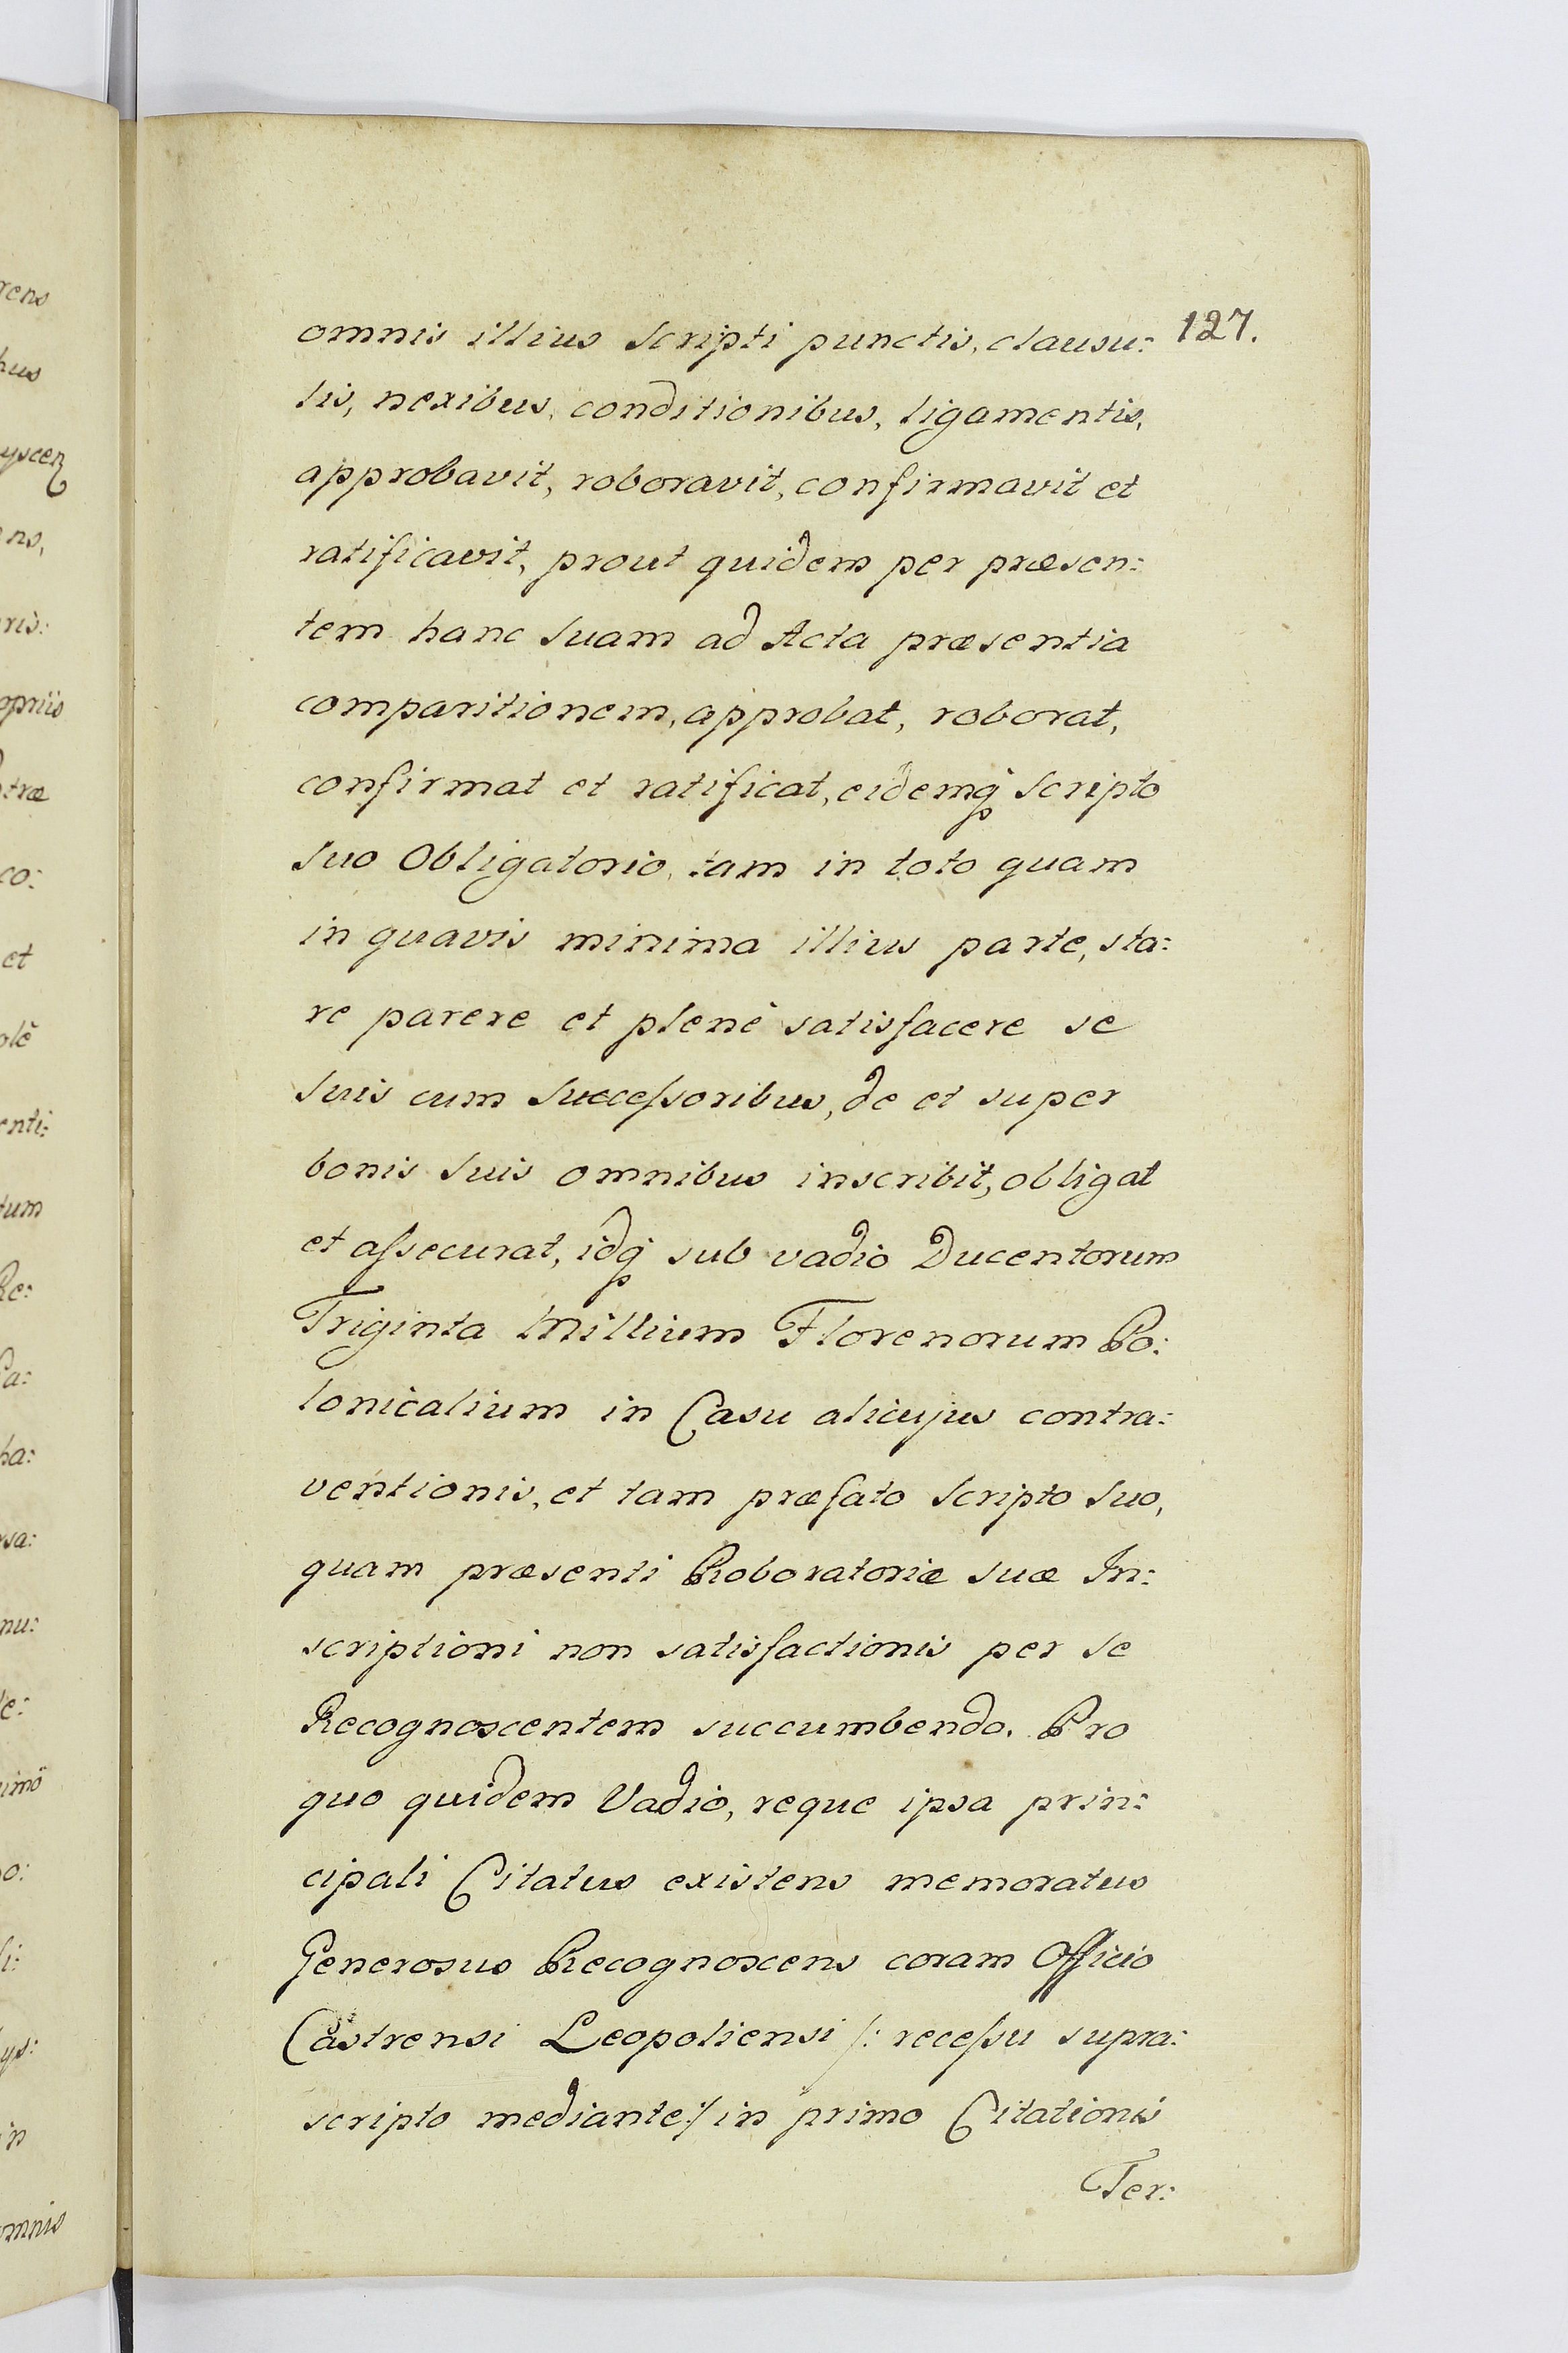 127.
omnis illius scripti punctis, clausu:
lis, nexibus, conditionibus, ligamentis,
approbavit, roboravit, confirmavit et
ratificavit, prout quidem per præsen:
tem hanc suam ad Acta præsentia
comparitionem, approbat, roborat,
confirmat et ratificat, eidemq́ Scripto
suo Obligatorio, tam in toto quam
in quavis minima illius parte, sta:
re parere et plenè satisfacere se
suis cum Succeſsoribus, de et super
bonis suis omnibus inscribit, obligat
et aſsecurat, idq́ sub vadio Ducentorum
Triginta Millium Florenorum Po:
lonicalium in Casu alicujus contra:
ventionis, et tam præfato Scripto suo,
quam præsenti Roboratoriæ suæ In:
scriptioni non satisfactionis per se
Recognoscentem succumbendo. Pro
quo quidem Vadio, reque ipsa prin:
cipali Citatus existens memoratus
Generosus Recognoscens coram Officio
Castrensi Leopoliensi /: receſsu supra:
scripto mediante :/ in primo Citationis
Ter:
rens
hus
yscen
ns,
ris:
opriis
træ
co:
et
olè
enti:
tum
Re:
Ca:
ha:
sa:
nu:
le:
imò
o:
li:
ys:
in
omnis